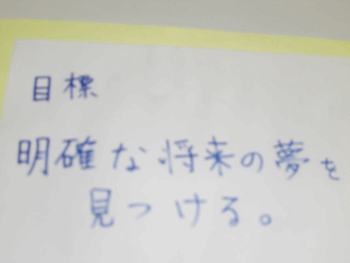 目標
明確な将来の夢を
見つける。